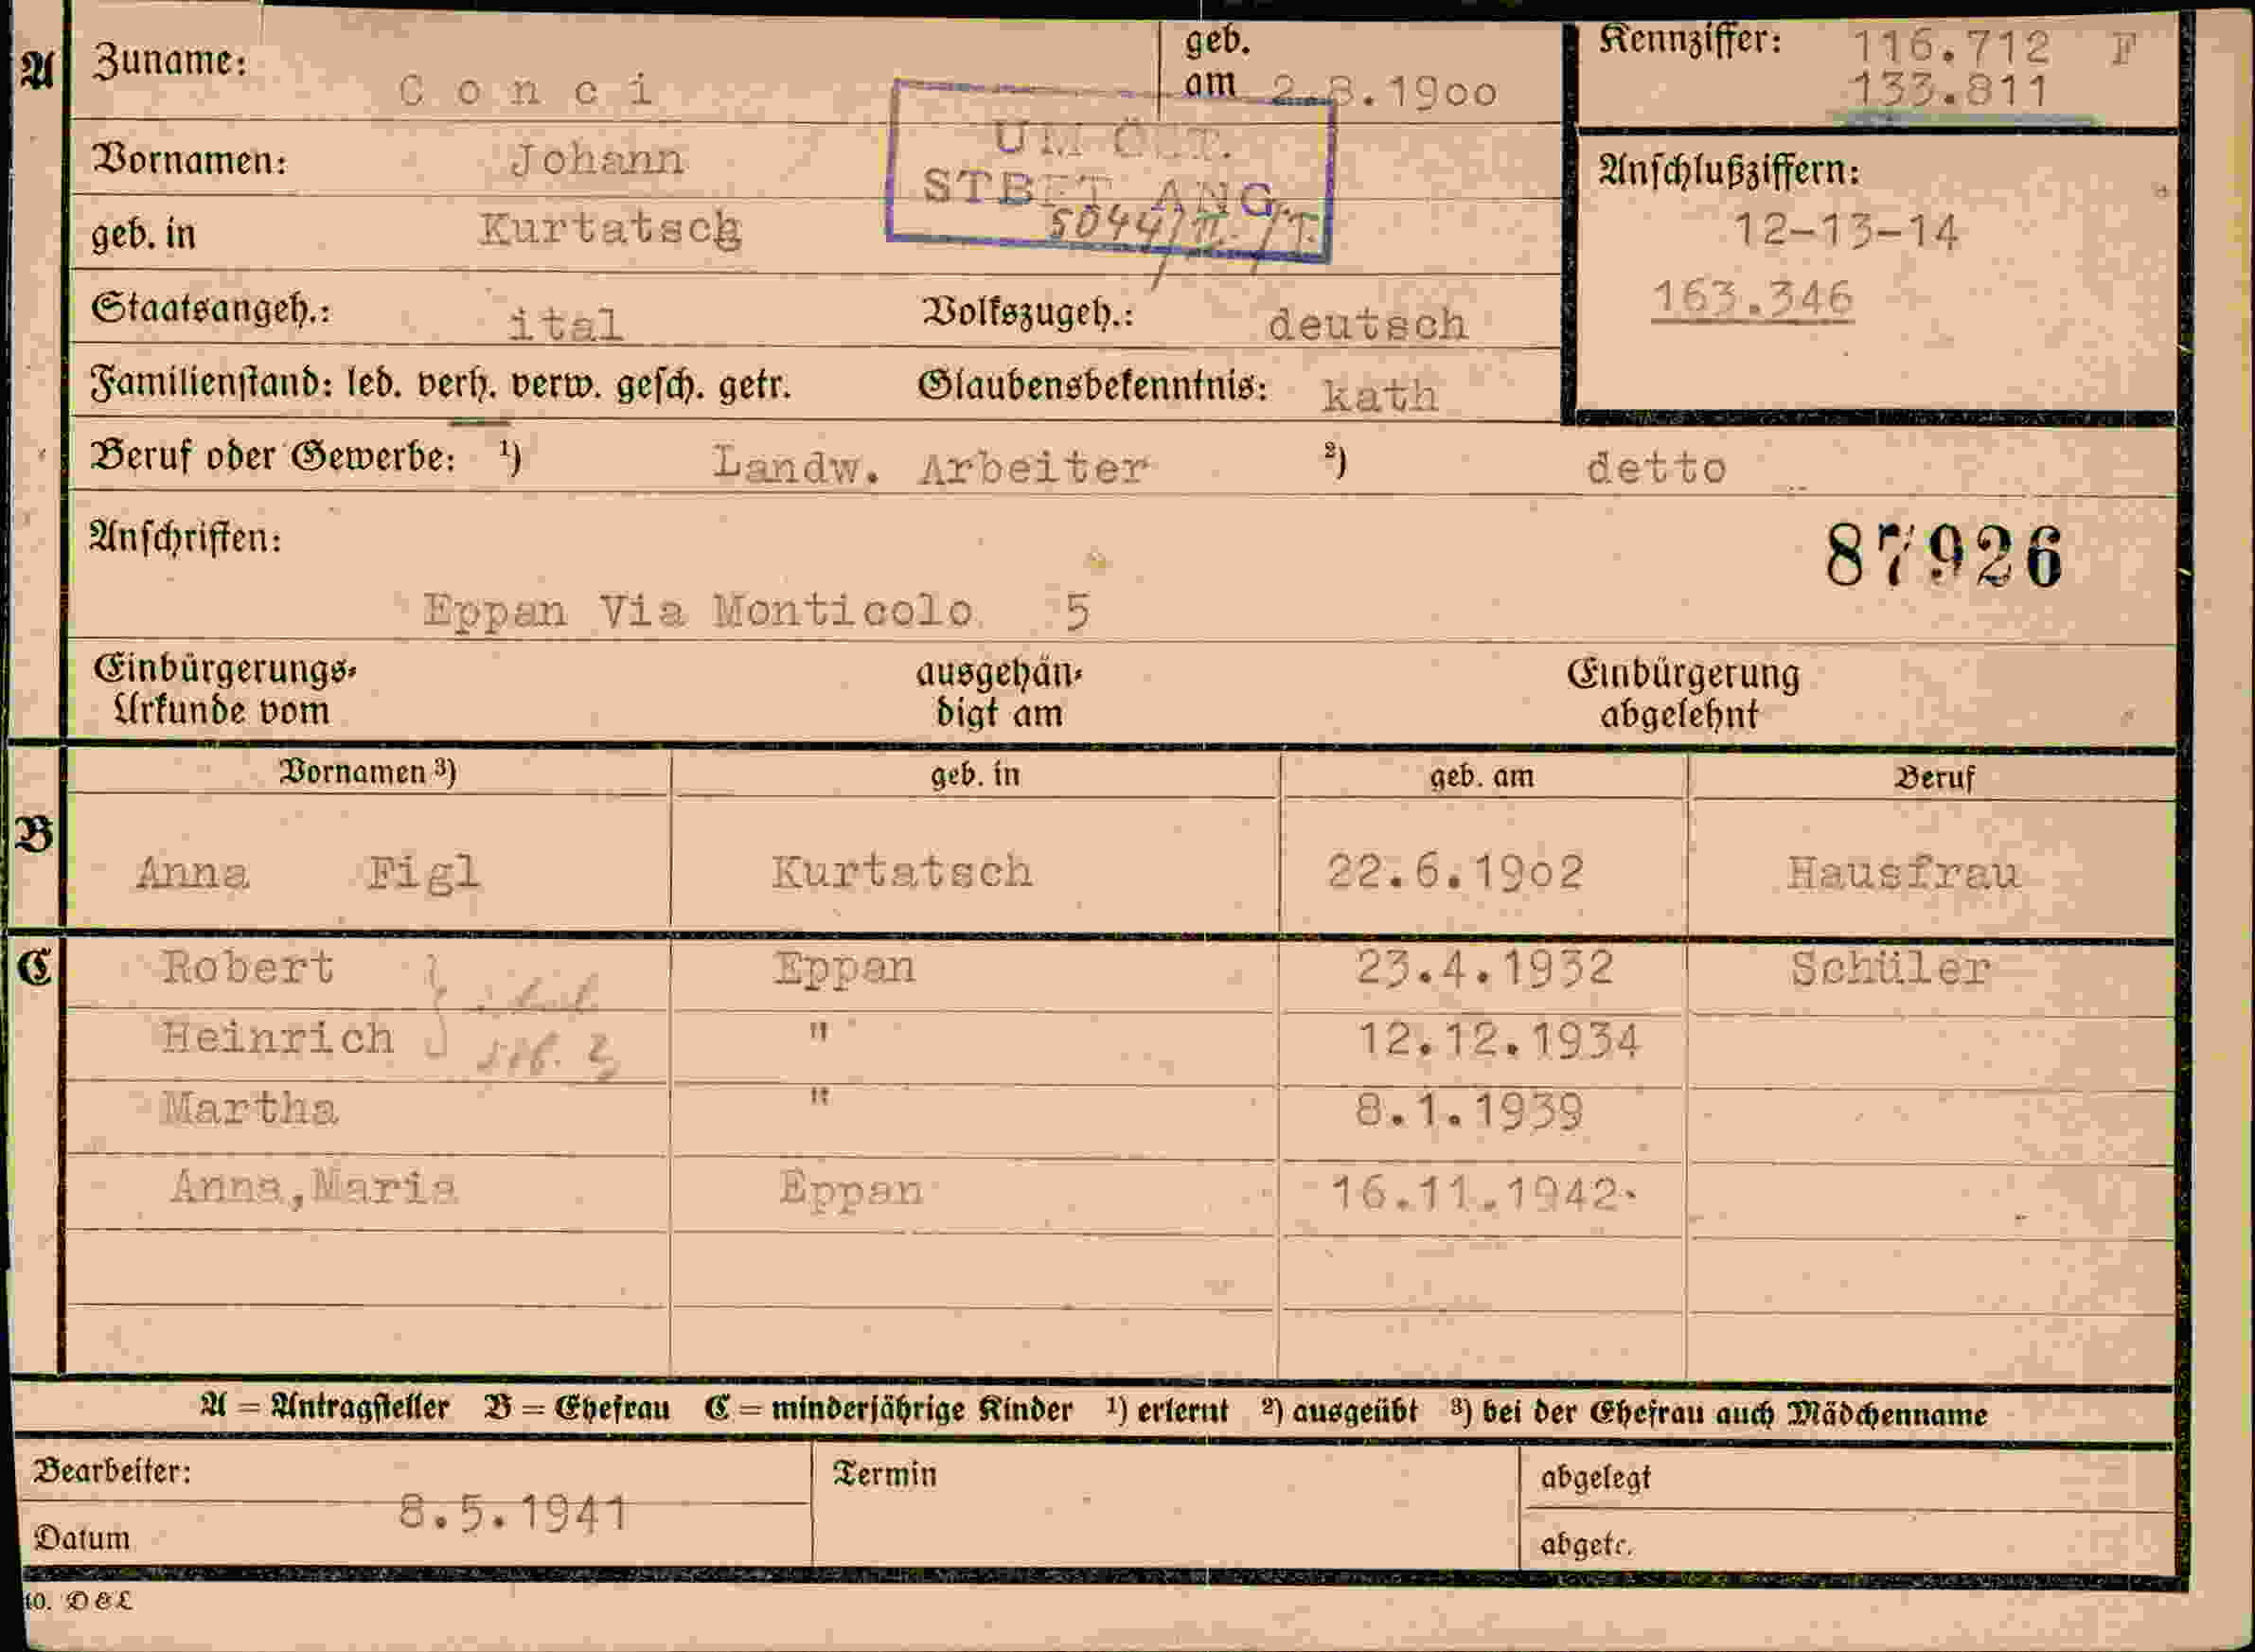 A Zuname: C o n c i geb. am 2.8.19oo Kennziffer: 116.712 F
133.811
UM ÖST.
STBET. ANG.
5044/II./T.
Vornamen: Johann
geb. in Kurtatsch
Anschlußziffern:
12-13-14
163.346
Staatsangeh.: ital Volkszugeh.: deutsch
Familienstand: led. verh. verw. gesch. getr. Glaubensbekenntnis: kath
Beruf oder Gewerbe: ¹) Landw. Arbeiter ²) detto
Anschriften: 87926
Eppan Via Monticolo 5
Einbürgerungs- ausgehän- Einbürgerung
Urkunde vom digt am abgelehnt
Vornamen ³) geb. in geb. am Beruf
B Anna Figl Kurtatsch 22.6.19o2 Hausfrau
C Robert Eppan 23.4.1932 Schüler
Heinrich " 12.12.1934
Martha " 8.1.1939
Anna,Maria Eppan 16.11.1942.
A = Antragsteller B = Ehefrau C = minderjährige Kinder ¹) erlernt ²) ausgeübt ³) bei der Ehefrau auch Mädchenname
Bearbeiter: Termin abgelegt
8.5.1941
Datum abgetr.
40. D&L